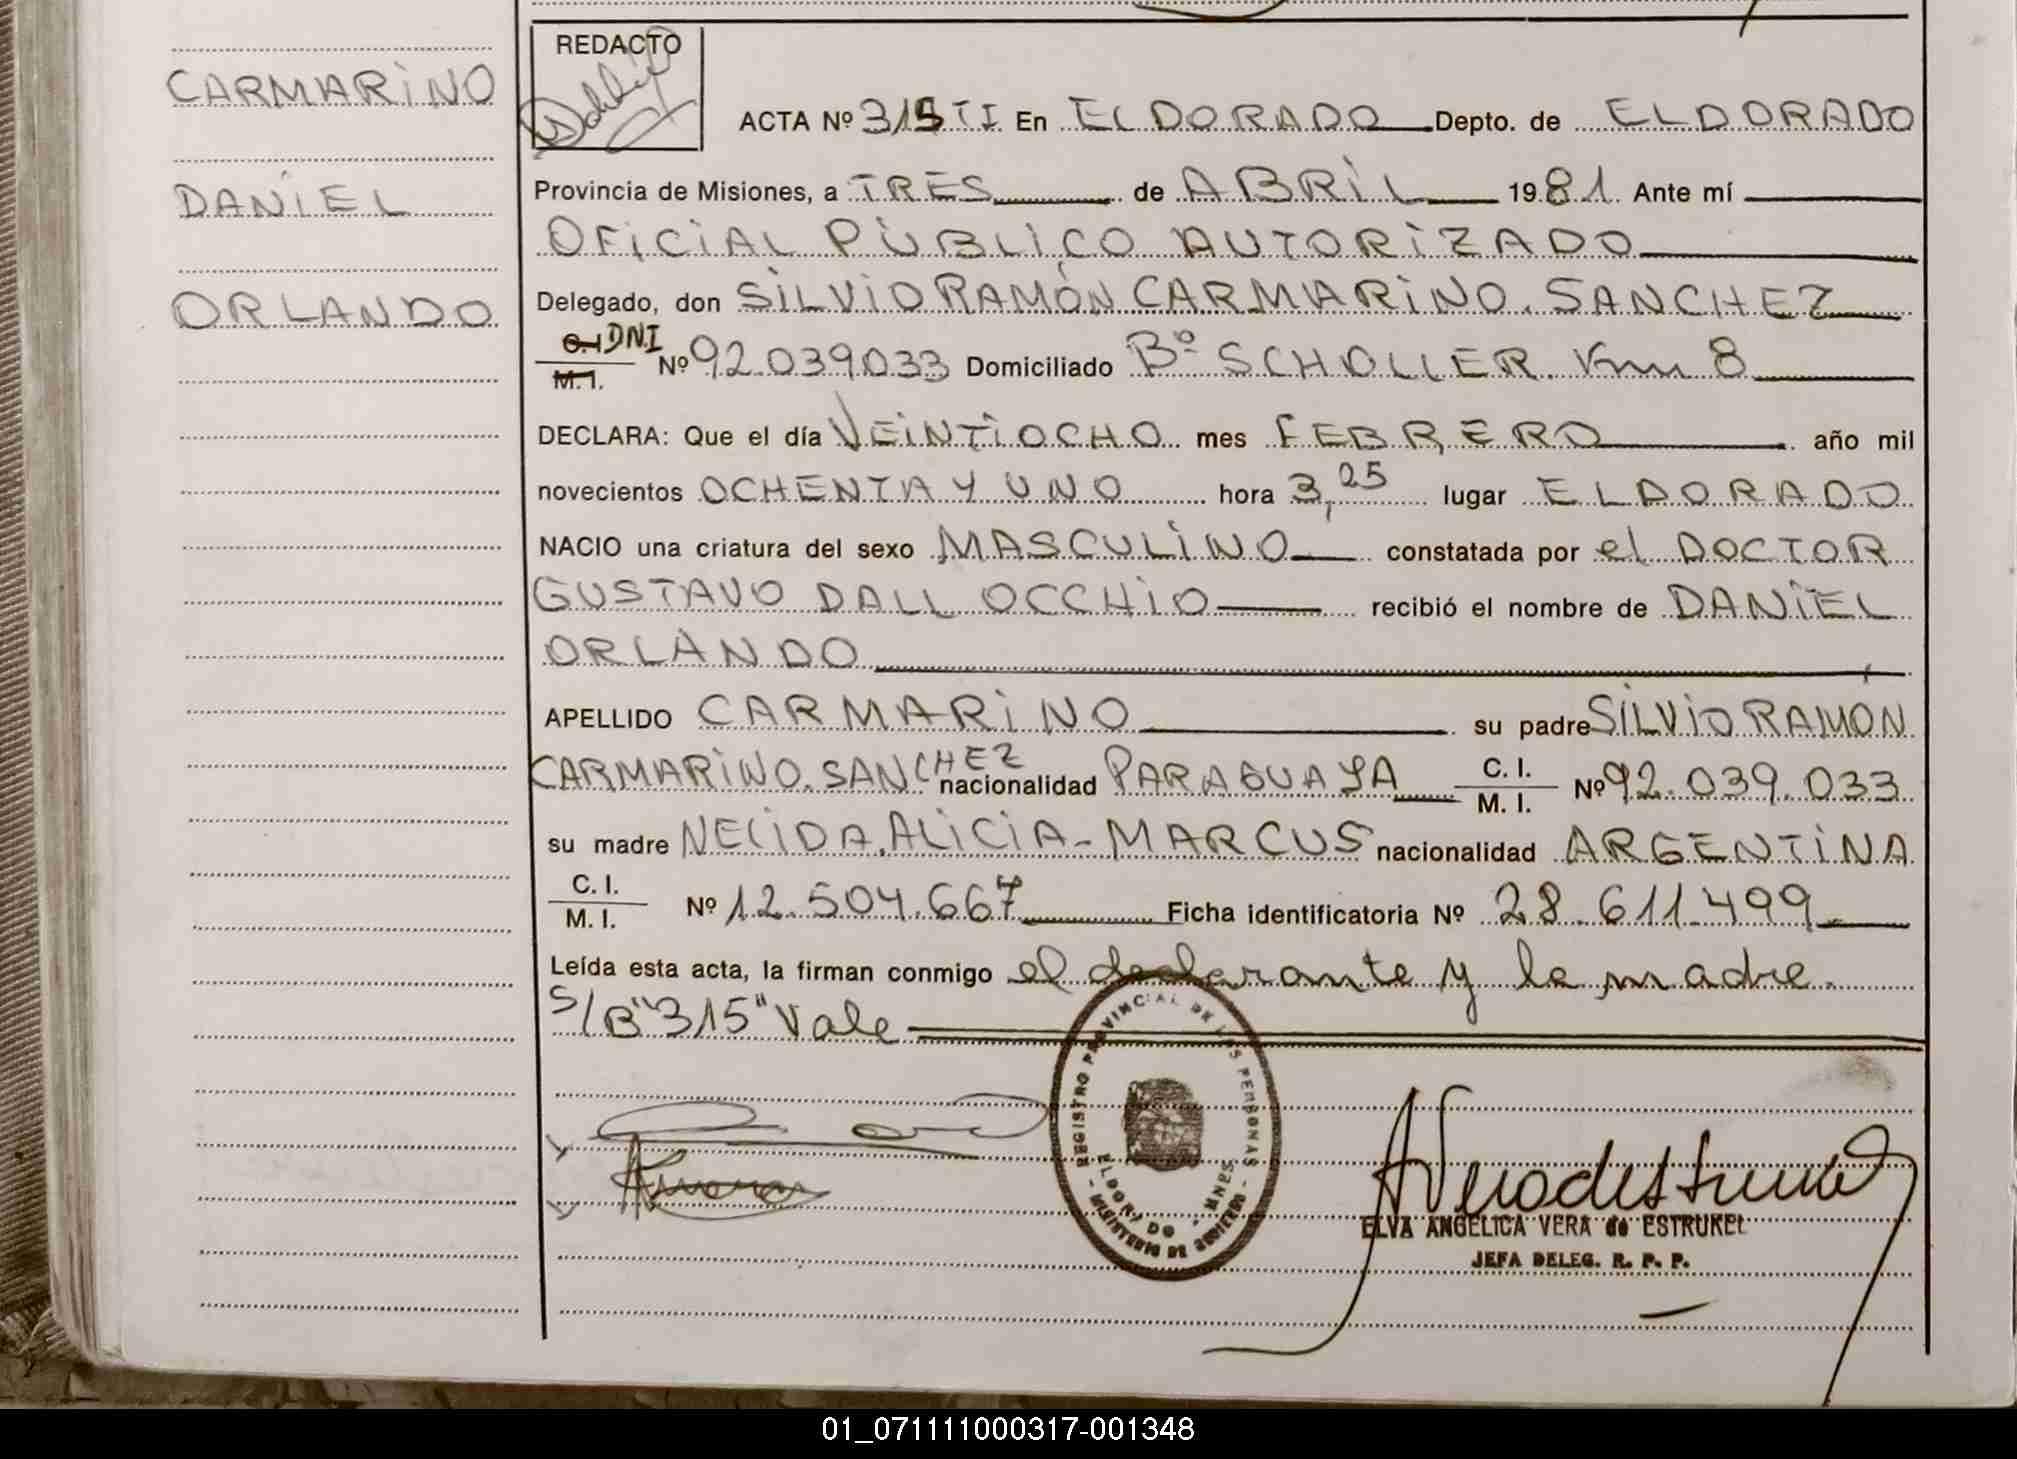 CARMARINO
DANIEL
ORLANDO
REDACTO
ACTA Nº 315 TI En ELDORADO Depto. de ELDORADO
Provincia de Misiones, a TRES de ABRIL 1981. Ante mí
OFICIAL PÚBLICO AUTORIZADO
Delegado, don SILVIO RAMÓN CARMARINO. SANCHEZ
C.I DNI
M. I. Nº 92.039.033 Domiciliado Bº SCHOLLER. Km 8
DECLARA: Que el día VEINTIOCHO mes FEBRERO año mil
novecientos OCHENTA Y UNO hora 3,25 lugar ELDORADO
NACIO una criatura del sexo MASCULINO constatada por el DOCTOR
GUSTAVO DALL OCCHIO recibió el nombre de DANIEL
ORLANDO
APELLIDO CARMARINO su padre SILVIO RAMÓN
CARMARINO. SANCHEZ nacionalidad PARAGUAYA C. I. M. I. Nº 92.039.033
su madre NELIDA. ALICIA - MARCUS nacionalidad ARGENTINA
C. I. M. I. Nº 12.504.667 Ficha identificatoria Nº 28.611.499
Leída esta acta, la firman conmigo el declarante y la madre.
S/B "315" Vale
REGISTRO PROVINCIAL DE LAS PERSONAS
ELDORADO - MNES.
- MINISTERIO DE GOBIERNO -
ELVA ANGELICA VERA de ESTRUKEL
JEFA DELEG. R. P. P.
01_071111000317-001348